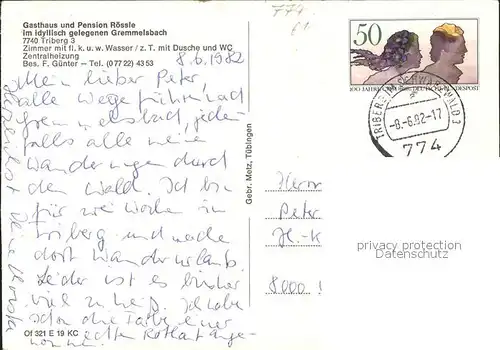 Gasthaus und Pension Rössle
im idyllisch gelegenen Gremmelsbach
7740 Triberg 3
Zimmer mit fl. k. u. w. Wasser / z. T. mit Dusche und WC
Zentralheizung
Bes. F. Günter – Tel. (0 77 22) 43 53
8.6.1982
Mein lieber Peter,
alle Wege führen nach
Gremmelsbach, jeden-
falls alle meine
Wanderungen durch
den Wald. Ich bin
für zwei Wochen in
Triberg und mache
dort Wanderurlaub.
Leider ist es bisher
viel zu heiß. Ich habe
schon die Farbe einer
echten Rothaut ange-
nommen.
Of 321 E 19 KC
Gebr. Metz, Tübingen
774
61
50
100 JAHRE DEUTSCHE BUNDESPOST
TRIBERG SCHWARZWALD 1
-8.-6.82-17
774
Herrn
Peter
H.-K
8000
privacy protection
Datenschutz